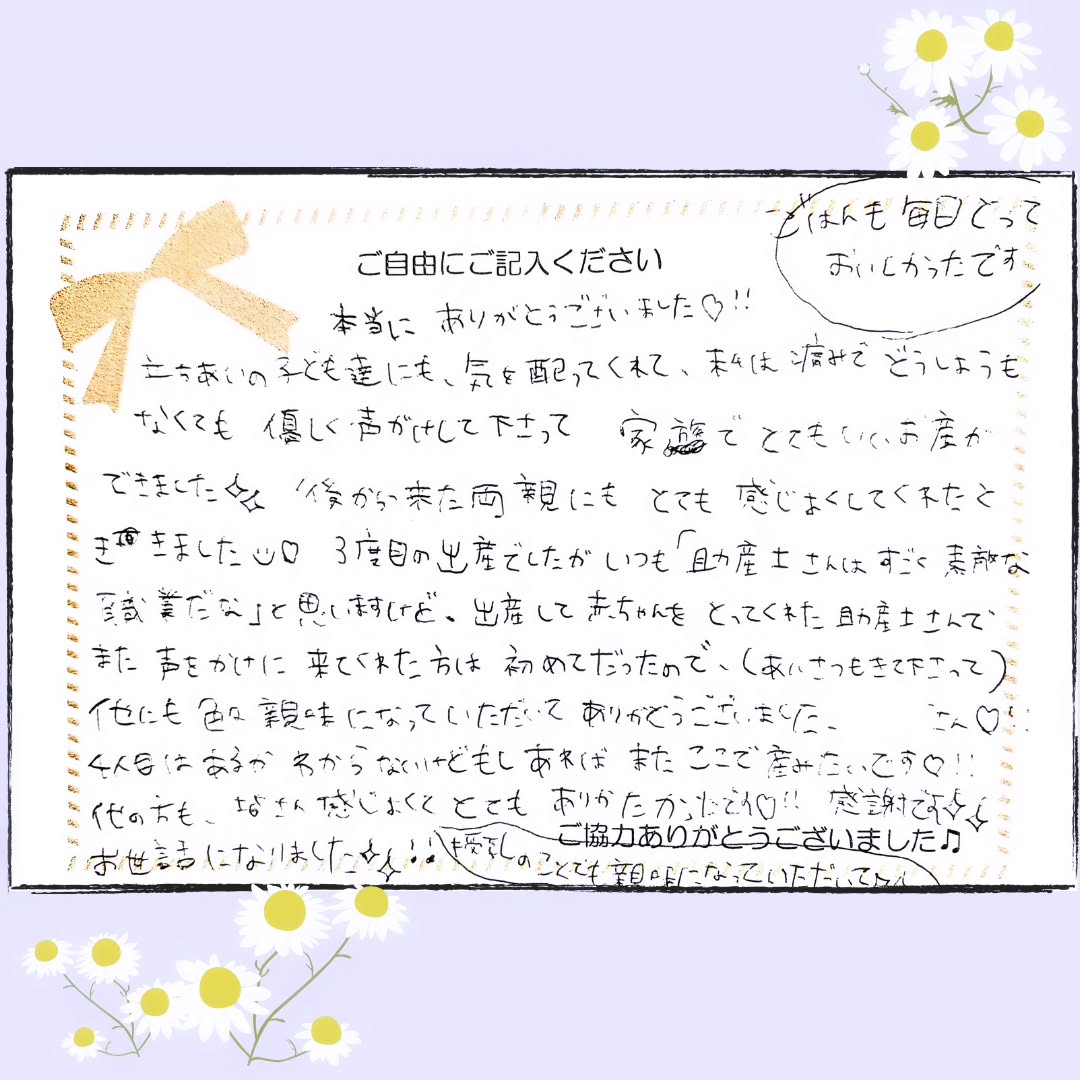 ごはんも毎日とって
おいしかったです
ご自由にご記入ください
本当に ありがとうございました♡!!
立ちあいの子ども達にも、気を配ってくれて、私は痛みでどうしようも
なくても 優しく声がけして下さって 家族で とてもいいお産が
できました 後から来た両親にも とても 感じよくしてくれたと
きました 3度目の出産でしたが いつも「助産士さんはすごく素敵な
職業だな」と思いますけど、出産して赤ちゃんを とってくれた助産士さんで
また 声をかけに 来てくれた方は 初めてだったので、(あいさつもきて下さって)
他にも 色々親味になっていただいて ありがとうございました、 さん♡!!
4人目はあるか わからないけどもしあれば また ここで産みたいです♡!!
他の方も、皆さん感じよくて とても ありがたかったです♡!! 感謝です
ご協力ありがとうございました♫
お世話になりました!!
のことでも親味になっていただいて